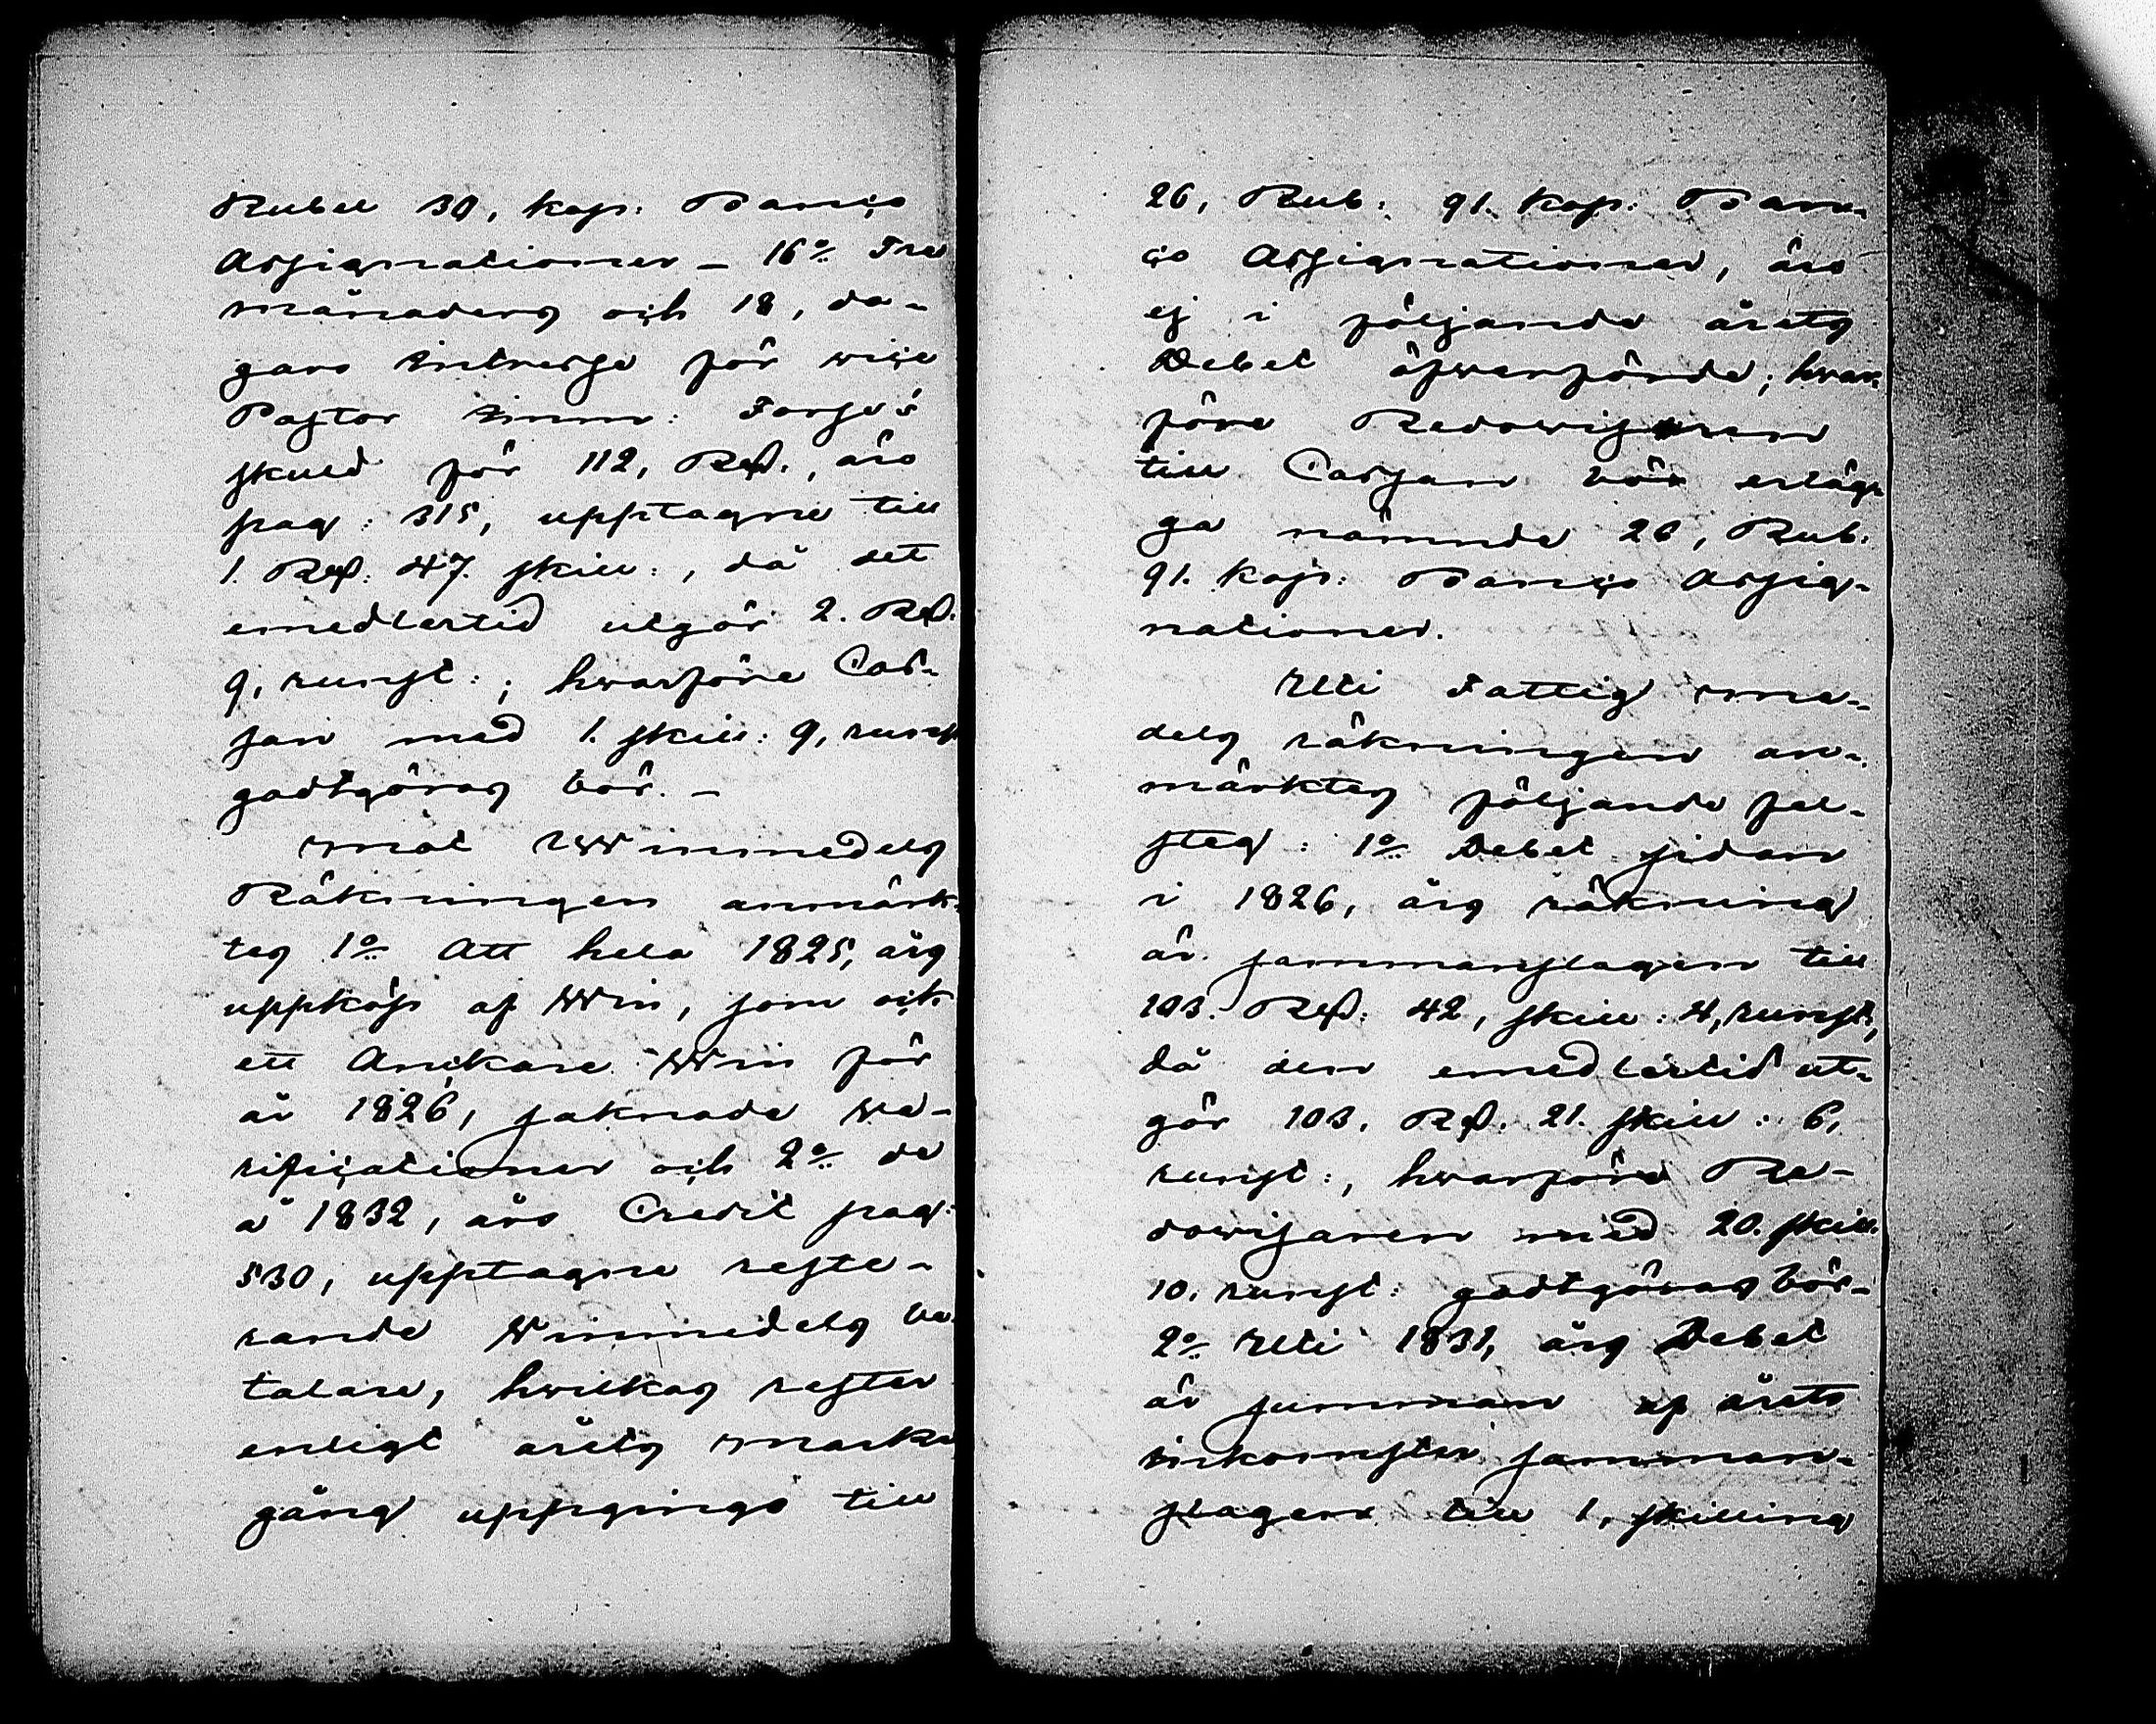 Rubel 30, kop: Banco
Assignationer – 16o Tre
månaders och 18, da-
gars Intresse för vice
Pastor Imm: Forsens
skuld för 112, Rß., äro
pag: 315, upptagne till
1. Rß: 47. skill:, då det
emedlertid utgör 2. Rß.
9, runst:; hwarföre Cas-
san med 1. skill: 9, runst
godtgöras bör. –
Mot Winmedels
Räkningen anmärk-
tes 1o Att hela 1825, års
uppköp af Win, som ock
ett Ankare Win för
år 1826, saknade ve-
rificationer och 2o de
å 1832, års Credit pag:
530, upptagne reste-
rande Winmedels be-
talare, hwilkas rester
enligt årets marke
gång uppgingo till
26, Rub: 91. kop: Ban-
co Assignationer, äro
ej i följande årets
Debet öfwerförde; hwar-
före Redowisaren
till Cassan bör erläg-
ga nämnde 26, Rub.
91. kop: Banco Assig-
nationer.
Uti Fattig me-
dels räkningen an-
märktes följande fel-
steg: 1o Debet sidan
i 1826, års räkning
är sammanslagen till
103. Rß: 42, skill: 4, runst:,
då den emedlertid ut-
gör 103, Rß. 21. skill: 6,
runst:, hwarföre Re-
dowisaren med 20. skill:
10. runst: godtgöras bör-
2o Uti 1831, års Debet
är summan af årets
inkomster samman-
slagen till 1, skilling